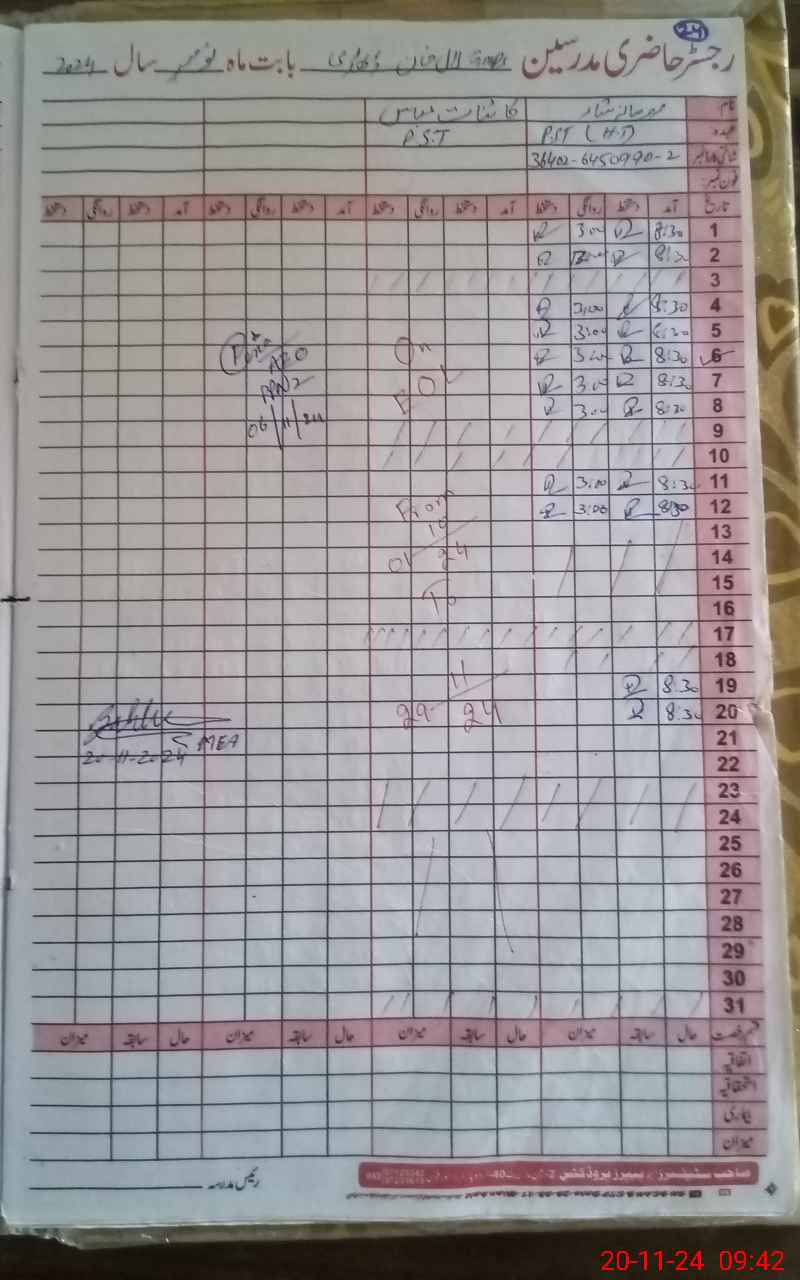 24
رجسٹر حاضری مدرسین GMPS لال خان بابت ماہ نومبر سال 2024
نام
عہدہ P.ST (H.T) P.S.T
شناختی کارڈ نمبر 36402-6450990-2
فون نمبر:
تاریخ آمد دستخط روانگی دستخط آمد دستخط روانگی دستخط آمد دستخط روانگی دستخط آمد دستخط روانگی دستخط
1 8:30 3:00
2 8:30 3:00
3
4 8:30 3:00
5 8:30 3:00
6 8:30 3:00 On
AEO
7 8:30 3:00 EOL
8 8:30 3:00
06/11/24
9
10
11 8:30 3:00
12 8:30 3:00 From
13 10
14 01 24
15
16 To
17
18
19 8:30 11
20 8:30 29 24
21 MEA
20-11-2024
22
23
24
25
26
27
28
29
30
31
قسم رخصت حال سابقہ میزان حال سابقہ میزان حال سابقہ میزان حال سابقہ میزان
اتفاقیہ
استحقاقیہ
بیماری
میزان
رئیس مدرسہ
20-11-24 09:42